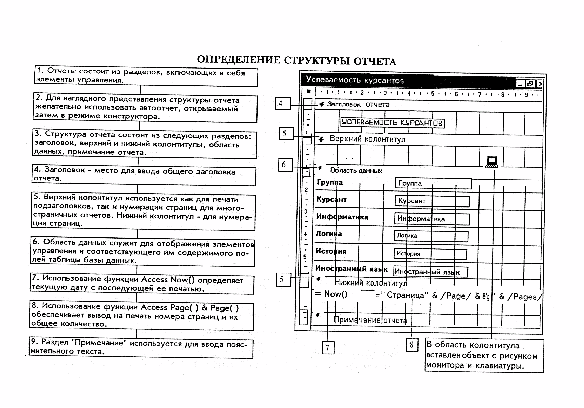 ОПРЕДЕЛЕНИЕ СТРУКТУРЫ ОТЧЕТА
1. Отчеты состоят из разделов, включающих в себя
элементы управления.
2. Для наглядного представления структуры отчета
желательно использовать автоотчет, открываемый
затем в режиме конструктора.
3. Структура отчета состоит из следующих разделов:
заголовок, верхний и нижний колонтитулы, область
данных, примечание отчета.
4. Заголовок - место для ввода общего заголовка
отчета.
5. Верхний колонтитул используется как для печати
подзаголовков, так и нумерации страниц для много-
страничных отчетов. Нижний колонтитул - для нумера-
ции страниц.
6. Область данных служит для отображения элементов
управления и соответствующего им содержимого по-
лей таблицы базы данных.
7. Использование функции Access Now() определяет
текущую дату с последующей ее печатью.
8. Использование функции Access Page( ) & Page( )
обеспечивает вывод на печать номера страниц и их
общее количество.
9. Раздел "Примечание" используется для ввода пояс-
нительного текста.
Успеваемость курсантов
4
Заголовок отчета
УСПЕВАЕМОСТЬ КУРСАНТОВ
5
Верхний колонтитул
6
Область данных
Группа
Группа
Курсант
Курсант
Информатика
Информатика
Логика
Логика
История
История
Иностранный язык
Иностранный язык
5
Нижний колонтитул
= Now()
="Страница" & /Page/ &
& /Pages/
Примечание отчета
7
8
В область колонтитула
вставлен объект с рисунком
монитора и клавиатуры.